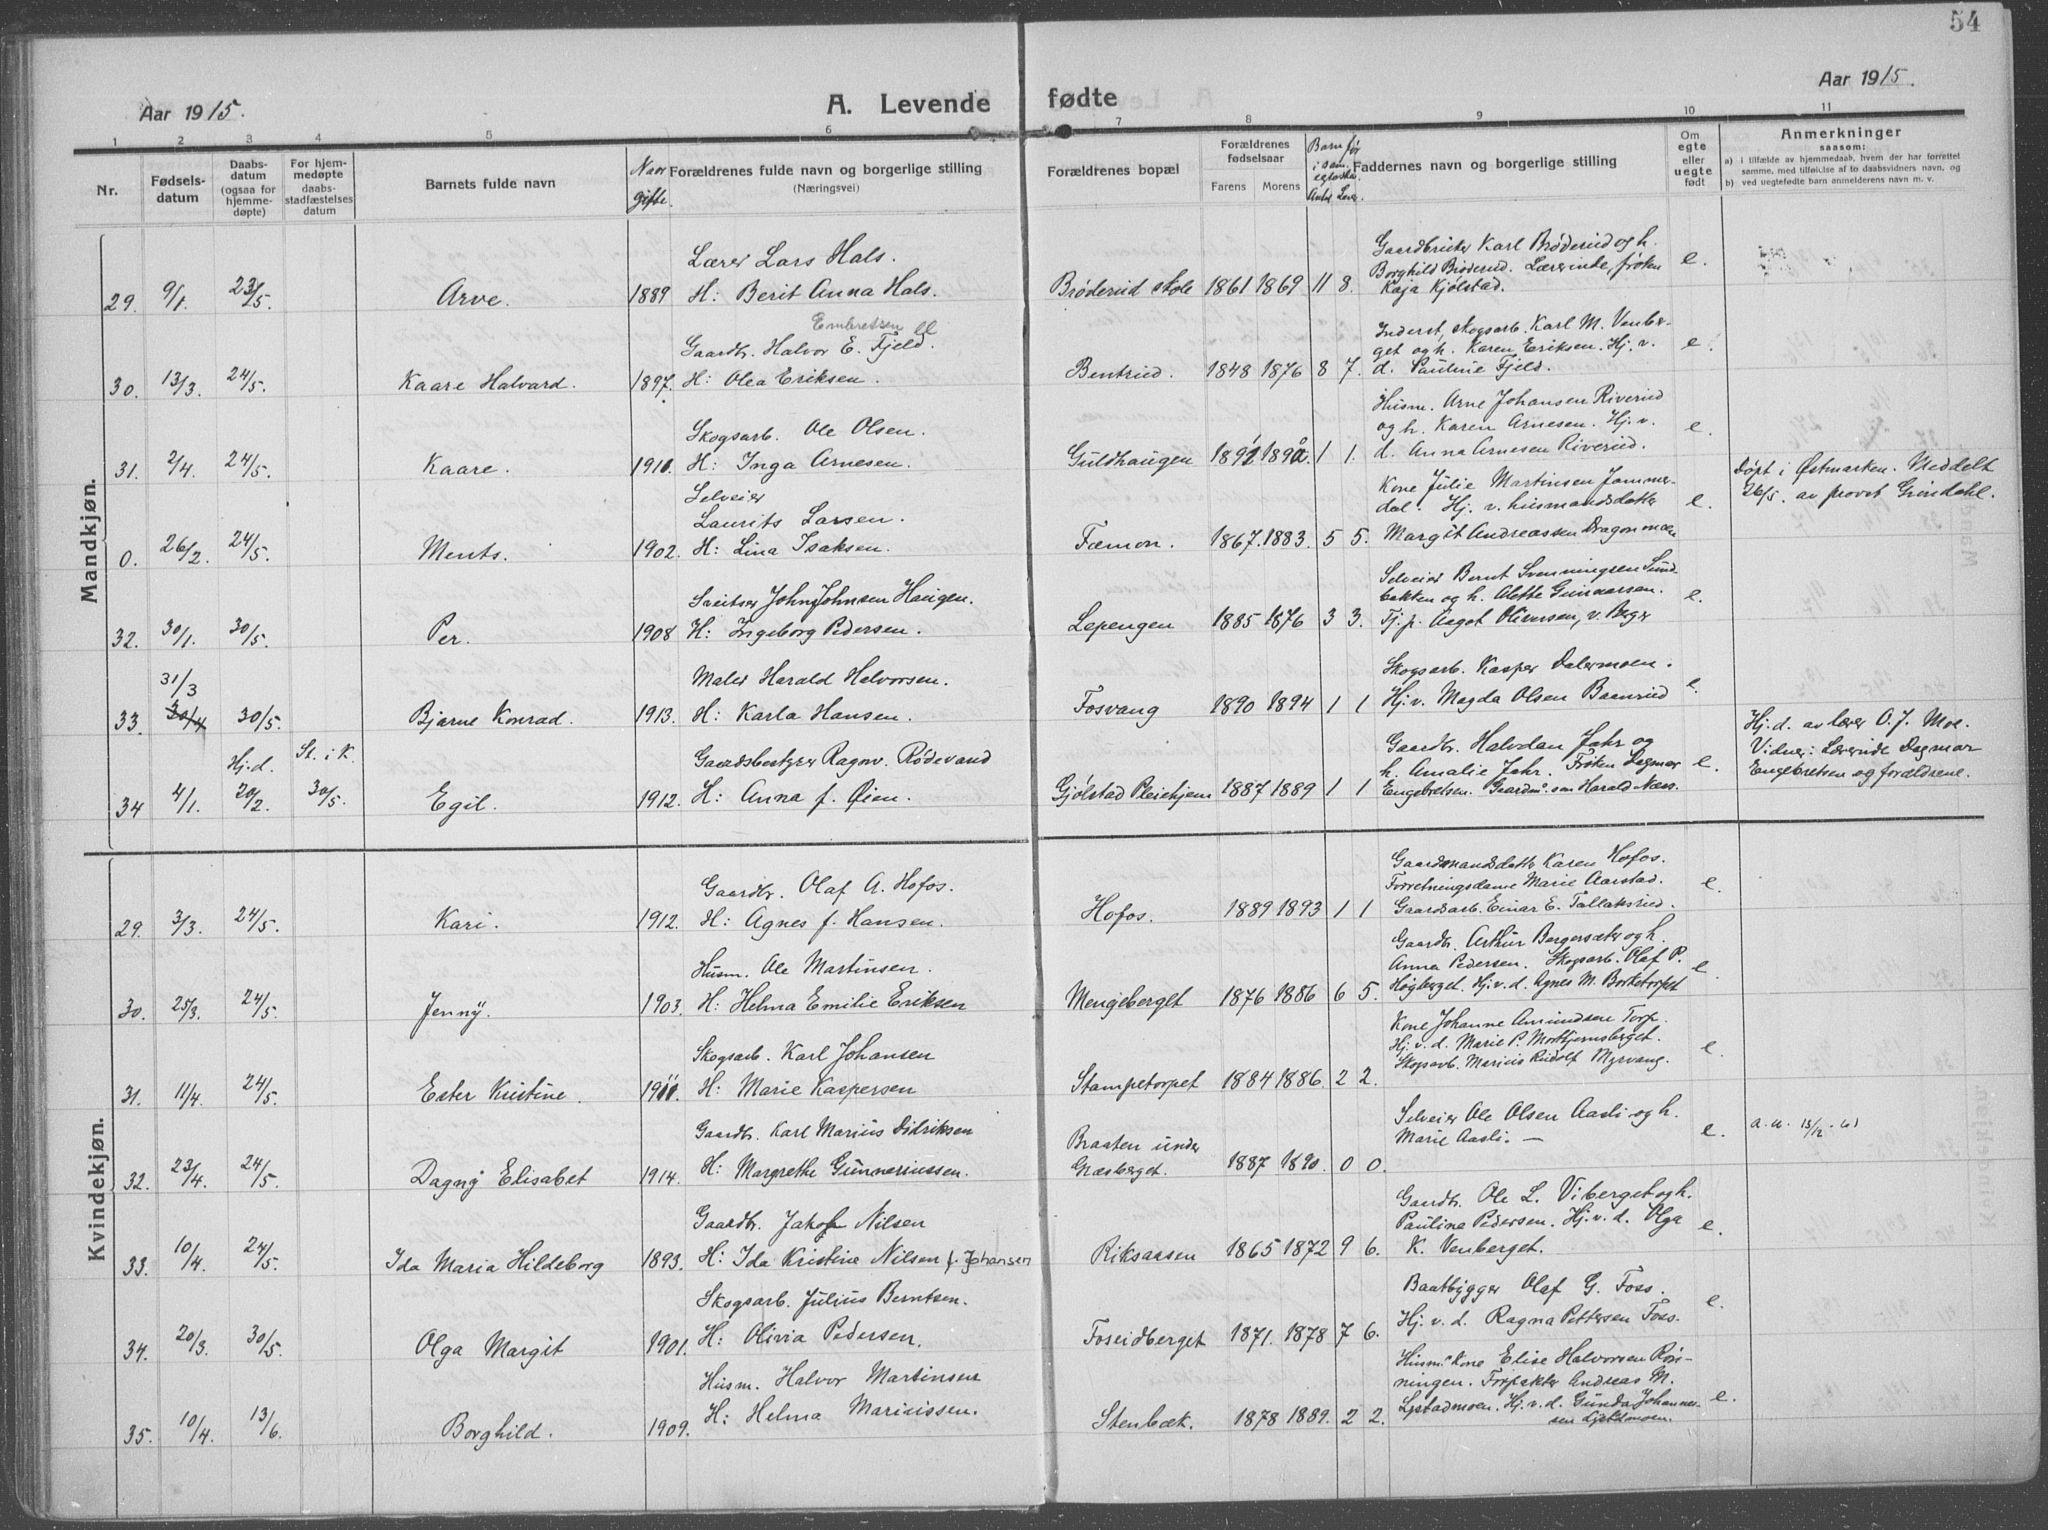 54
Aar 1915.
A. Levende fødte
Aar 1915.
1 2 3 4 5 6 7 8 9 10 11
Nr.
Fødsels-
datum
Daabs-
datum
(ogsaa for
hjemme-
døpte)
For hjem-
medøpte
daabs-
stadfæstelses
datum
Barnets fulde navn
Naar
gifte.
Forældrenes fulde navn og borgerlige stilling
(Næringsvei)
Forældrenes bopæl
Forældrenes
fødselsaar
Farens Morens
Barn før
i sam.
egteska.
Antal Lever.
Faddernes navn og borgerlige stilling
Om
egte
eller
uegte
født
Anmerkninger
saasom:
a) i tilfælde av hjemmedaab, hvem der har forrettet
samme, med tilføielse af to daabsvidners navn, og
b) ved uegtefødte barn anmelderens navn m. v.
Mandkjøn.
Lærer Lars Hals.
29. 9/1. 23/5. Arve. 1889 H: Berit Anna Hals. Brøderud skole 1861 1869 11 8.
Gaardbruker Karl Brøderud og h.
Borghild Brøderud. Lærerinde, frøken
Kaja Kjølstad.
e.
Embretsen
Gaardbr. Halvor E. Fjeld.
30. 13/3. 24/5. Kaare Halvard. 1897. H: Olea Eriksen. Bentrud. 1848 1876 8 7.
Inderst, skogsarb. Karl M. Venber-
get og h. Karen Eriksen. Hj. v.
d. Pauline Fjeld.
e.
Skogsarb. Ole Olsen.
31. 2/4. 24/5. Kaare. 1911. H: Inga Arnesen. Guldhaugen 1891 1892. 1 1.
Husm. Arne Johansen Riverud
og h. Karen Arnesen. Hj. v.
d. Anna Arnesen Riverud.
e.
Selveier
Laurits Larsen.
0. 26/2. 24/5. Ments. 1902. H: Lina Isaksen. Fæmon. 1867. 1883. 5 5.
Kone Julie Martinsen Jammer-
dal. Hj. v. husmandsdatter
Margit Andreassen Dragonmoen
e.
Døpt i Østmarken. Meddelt
26/5. av provst Grindahl.
Sveitser John Johnsen Haugen.
32. 30/1. 30/5. Per. 1908 H: Ingeborg Pedersen. Lepengen 1885 1876 3 3.
Selveier Bernt Svenningsen Sund-
bakken og h. Alette Gunnarsen.
Tj. p. Aagot Oliversen, v. Berger
e.
Maler Harald Halvorsen.
33. 31/3 30/4 30/5. Bjarne Konrad. 1913. H: Karla Hansen. Fosvang 1890 1894 1 1
Skogsarb. Kasper Dalermoen.
Hj. v. Magda Olsen Baanrud
e.
Hj. d. St. i K.
Gaardsbestyrer Ragnv. Rødevand
34 4/1. 20/2. 30/5. Egil. 1912. H: Anna f. Øien. Gjølstad Pleiehjem 1887 1889 1 1
Gaardbr. Halvdan Jahr og
h. Amalie Jahr. Frøken Dagmar
Engebretsen. Gaardm. søn Harald Næss.
e.
Hj. d. av lærer O. J. Moe.
Vidner: Lærerinde Dagmar
Engebretsen og forældrene.
Kvindekjøn.
Gaardbr. Olaf A. Hofos.
29. 3/3. 24/5. Kari. 1912. H: Agnes f. Hansen. Hofos. 1889 1893 1 1
Gaardmandsdatter Karen Hofos.
Forretningsdame Marie Aarstad.
Gaardsarb. Einar E. Tallaksrud.
e.
Husm. Ole Martinsen.
30. 25/3. 24/5. Jenny. 1903. H: Helma Emilie Eriksen Mengeberget 1876 1886 6 5.
Gaardbr. Arthur Bergersæter og h.
Anna Pedersen. Skogsarb. Olaf P.
Høgberget. Hj. v. d. Agnes M. Borketorpet
e.
Skogsarb. Karl Johansen
31. 11/4. 24/5. Ester Kristine. 1911. H: Marie Kaspersen Stampetorpet 1884 1886. 2 2.
Kone Johanne Amundsen Torp.
Hj. v. d. Marie P. Mortkjernsberget.
Skogsarb. Marius Rudolf Myrvang.
e.
Gaardbr. Karl Marius Didriksen
32. 23/4. 24/5. Dagny Elisabet 1914. H: Margrethe Gunneriussen. Braaten under
Græsberget. 1887 1890. 0 0.
Selveier Ole Olsen Aasli og h.
Marie Aasli. —
e.
Gaardbr. Jakob Nilsen
33. 10/4. 24/5. Ida Maria Hildeborg 1893. H: Ida Kristine Nilsen f. Johansen Riksaasen 1865 1872 9 6.
Gaardbr. Ole L. Viberget og h.
Paulina Pedersen. Hj. v. d. Olga
K. Venberget.
e.
Skogsarb. Julius Berntsen.
34. 20/3. 30/5. Olga Margit 1901. H: Olivia Pedersen. Foseidberget 1871. 1878 7 6.
Baatbygger Olaf G. Foss.
Hj. v. d. Ragna Pettersen Foss.
e.
Husm. Halvor Martinsen
35. 10/4. 13/6. Borghild. 1909. H: Helma Mariussen. Stenbæk. 1878 1889. 2 2.
Husm. kone Elise Halvorsen Røn-
ningen. Forpakter Andreas M.
Ljstadmoen. Hj. v. d. Gunda Johannes-
sen
e.